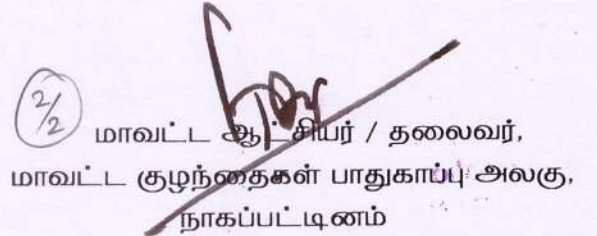 2/2
மாவட்ட ஆட்சியர் / தலைவர்,
மாவட்ட குழந்தைகள் பாதுகாப்பு அலகு,
நாகப்பட்டினம்